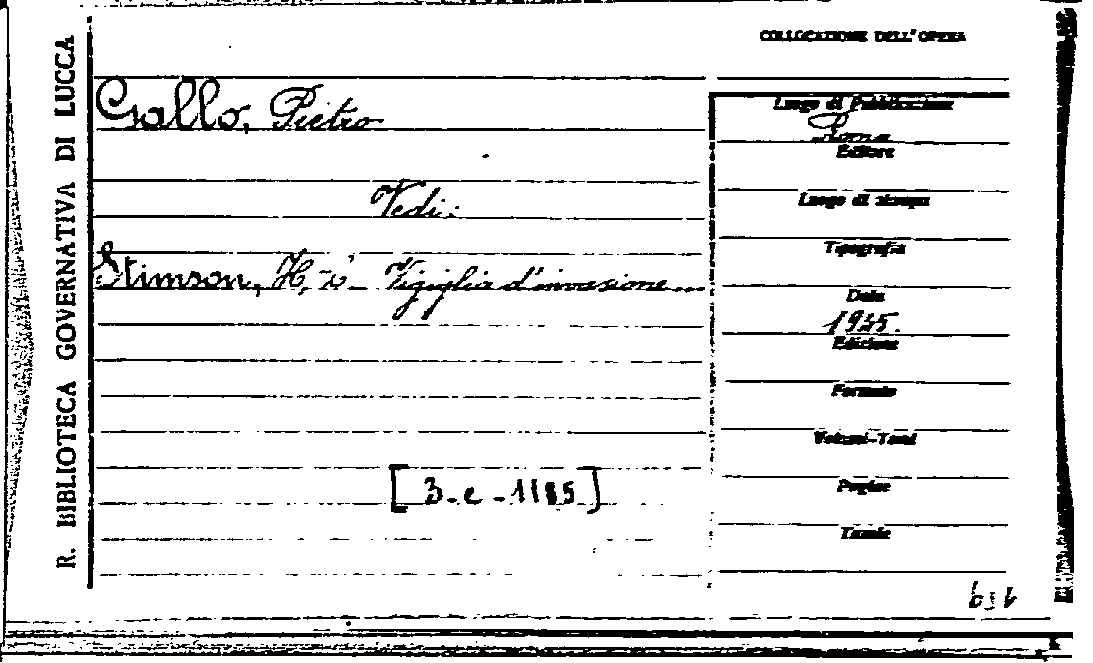 R. BIBLIOTECA GOVERNATIVA DI LUCCA
COLLOCAZIONE DELL'OPERA
Gallo, Pietro
Vedi:
Stimson, H, - Vigiglia d'invasione...
[3-e-1185]
Luogo di Pubblicazione
Roma
Editore
Luogo di stampa
Tipografia
Data
1945.
Edizione
Formato
Volumi-Tomi
Pagine
Tavole